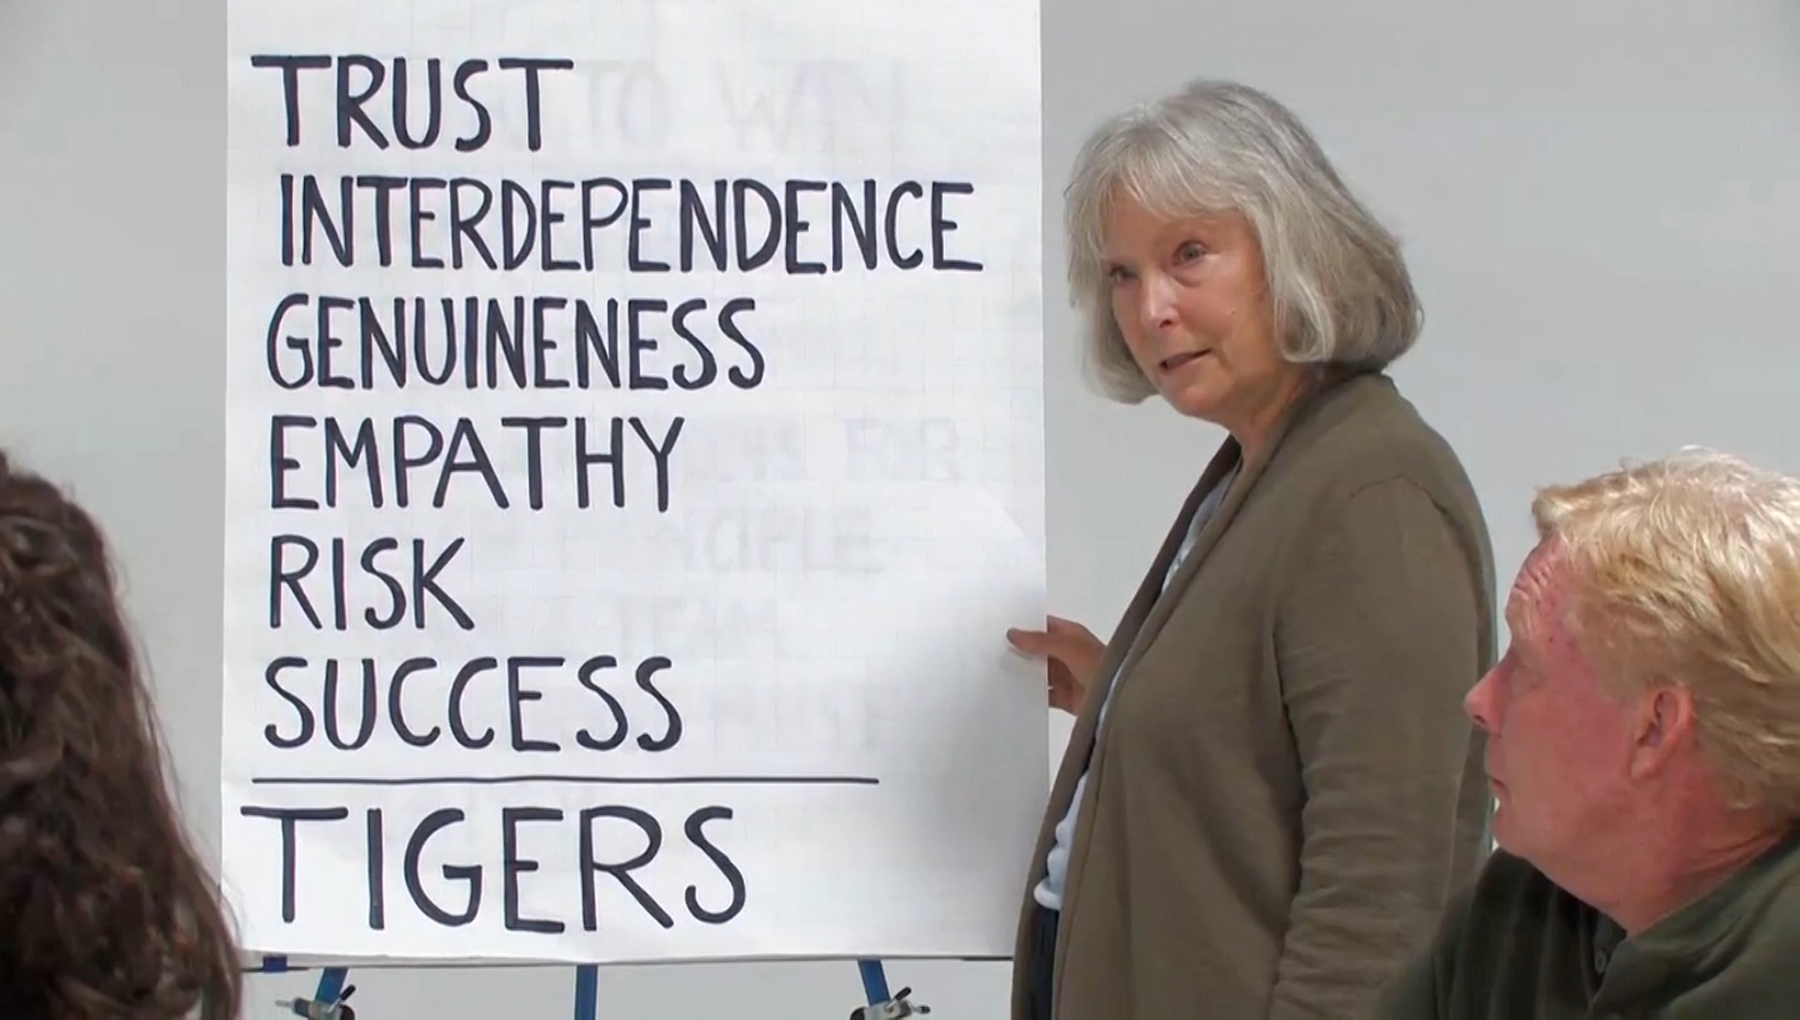 TRUST
INTERDEPENDENCE
GENUINENESS
EMPATHY
RISK
SUCCESS
TIGERS